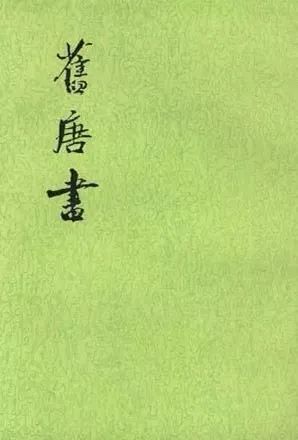 舊唐書